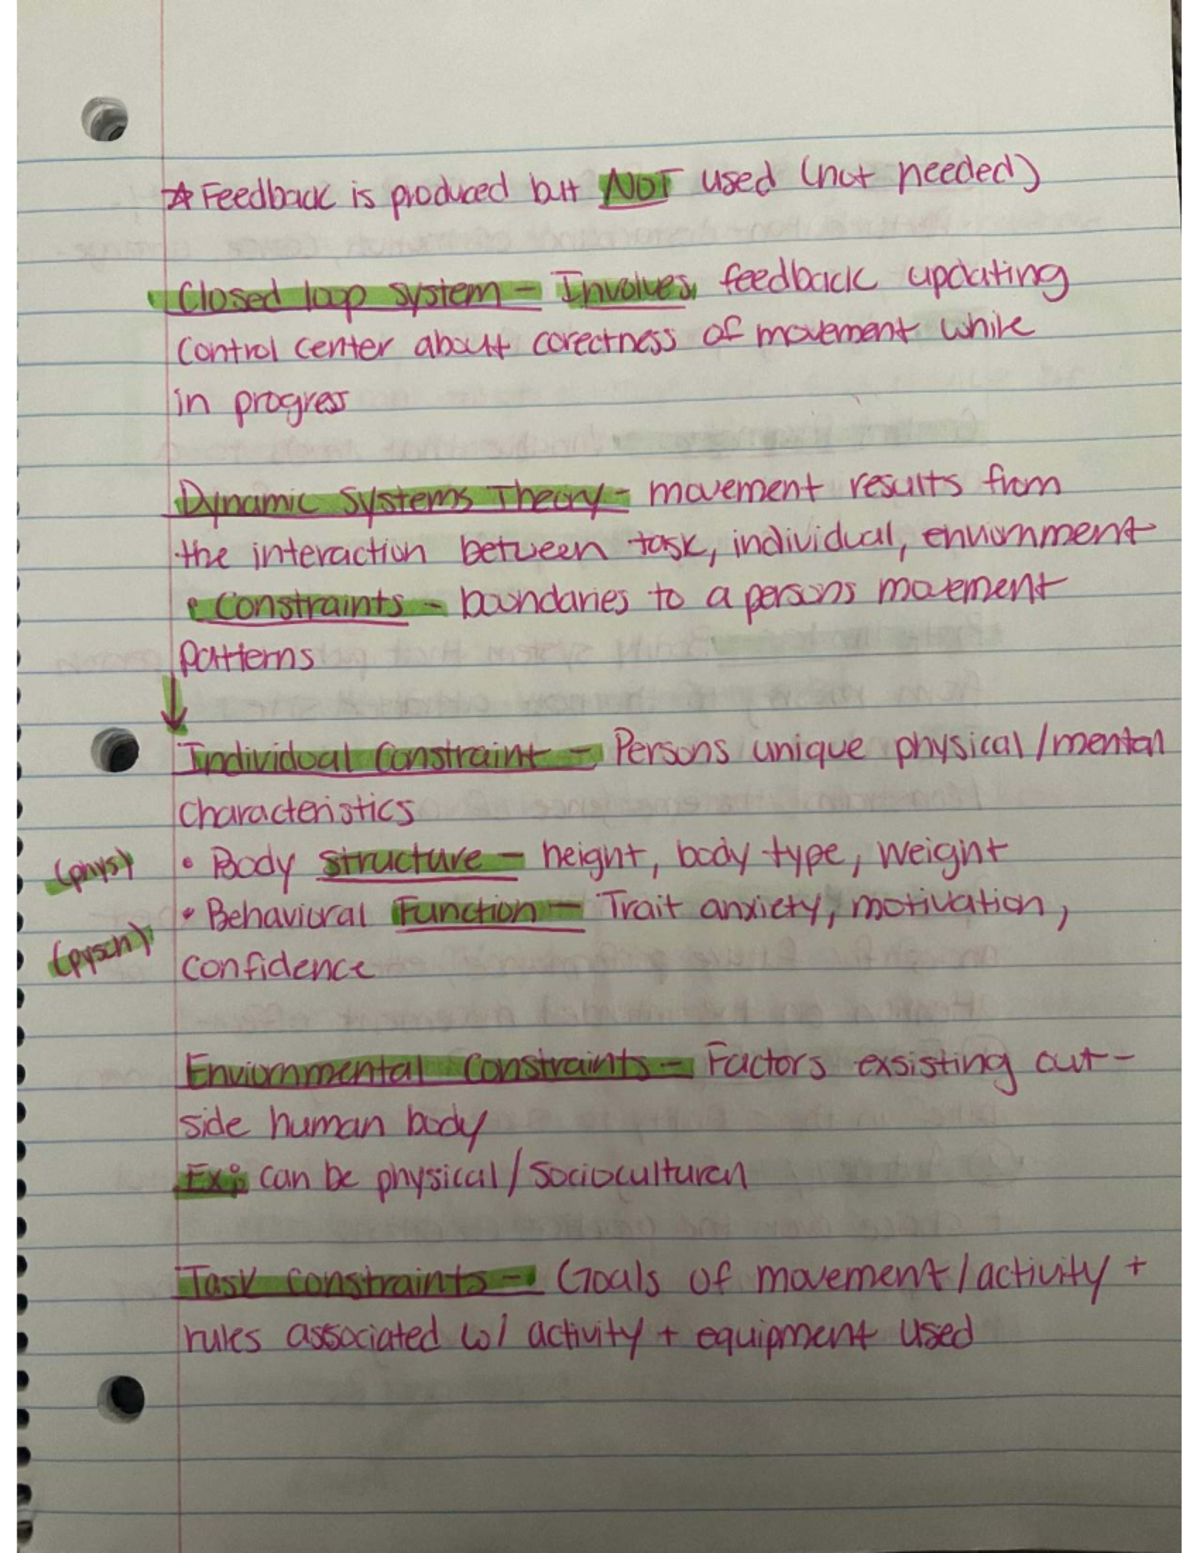 ☆ Feedback is produced but NOT used (not needed)
Closed loop system - Involves feedback updating
control center about corectness of movement while
in progress
Dynamic Systems Theory - movement results from
the interaction between task, individual, enviornment
• Constraints - boundaries to a persons movement
patterns
↓
Individual Constraint - Persons unique physical/mental
characteristics
(phys) • Body structure - height, body type, weight
(pysch) • Behavioral Function - Trait anxiety, motivation,
confidence
Enviornmental Constraints - Factors exsisting out-
side human body
Ex: can be physical/sociocultural
Task constraints - Goals of movement/activity +
rules associated w/ activity + equipment used